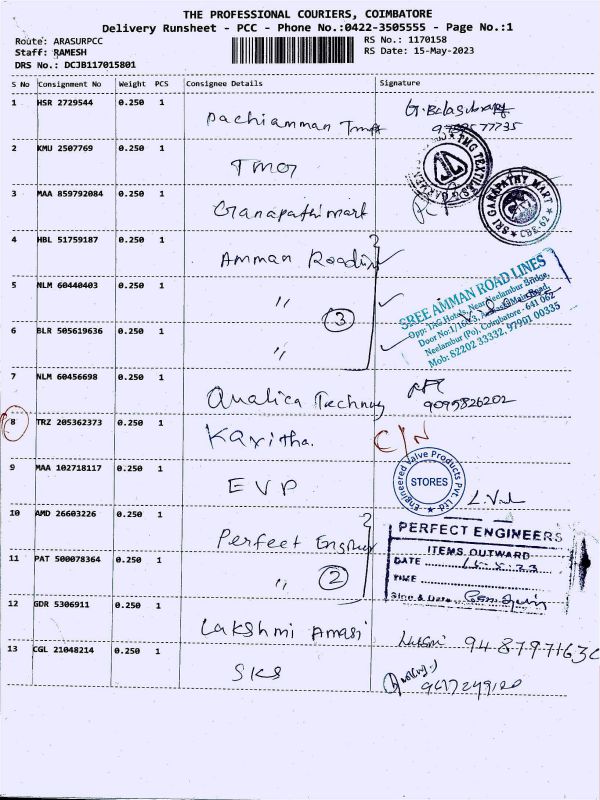 THE PROFESSIONAL COURIERS, COIMBATORE
Delivery Runsheet - PCC - Phone No.:0422-3505555 - Page No.:1
Route: ARASURPCC RS No.: 1170158
Staff: RAMESH RS Date: 15-May-2023
DRS No.: DCJB117015801
S No Consignment No Weight PCS Consignee Details Signature
1 HSR 2729544 0.250 1 Pachiamman
2 KMU 2507769 0.250 1 TMG
TMG TEXTILES
3 MAA 859792084 0.250 1 Ganapathimart
SRI GANAPATHY MART
CBE-62
4 HBL 51759187 0.250 1 Amman Roadlin
5 NLM 60440403 0.250 1 "
3
6 BLR 505619636 0.250 1 "
SREE AMMAN ROAD LINES
Opp: TAG Hotels, Near Neelambur Bridge,
Neelambur (Po), Coimbatore - 641 062
Mob: 82202 33332, 97901 00335
7 NLM 60456698 0.250 1 Qualica
9095826202
8 TRZ 205362373 0.250 1 Kavitha. C/N
9 MAA 102718117 0.250 1 EVP
Engineered Valve Products Pvt. Ltd
STORES
10 AMD 26603226 0.250 1 Perfect
11 PAT 500078364 0.250 1 "
2
PERFECT ENGINEERS
ITEMS OUTWARD
DATE 15.5.23
TIME
Sign & Date
12 GDR 5306911 0.250 1 Lakshmi Amasi
13 CGL 21048214 0.250 1 SKS